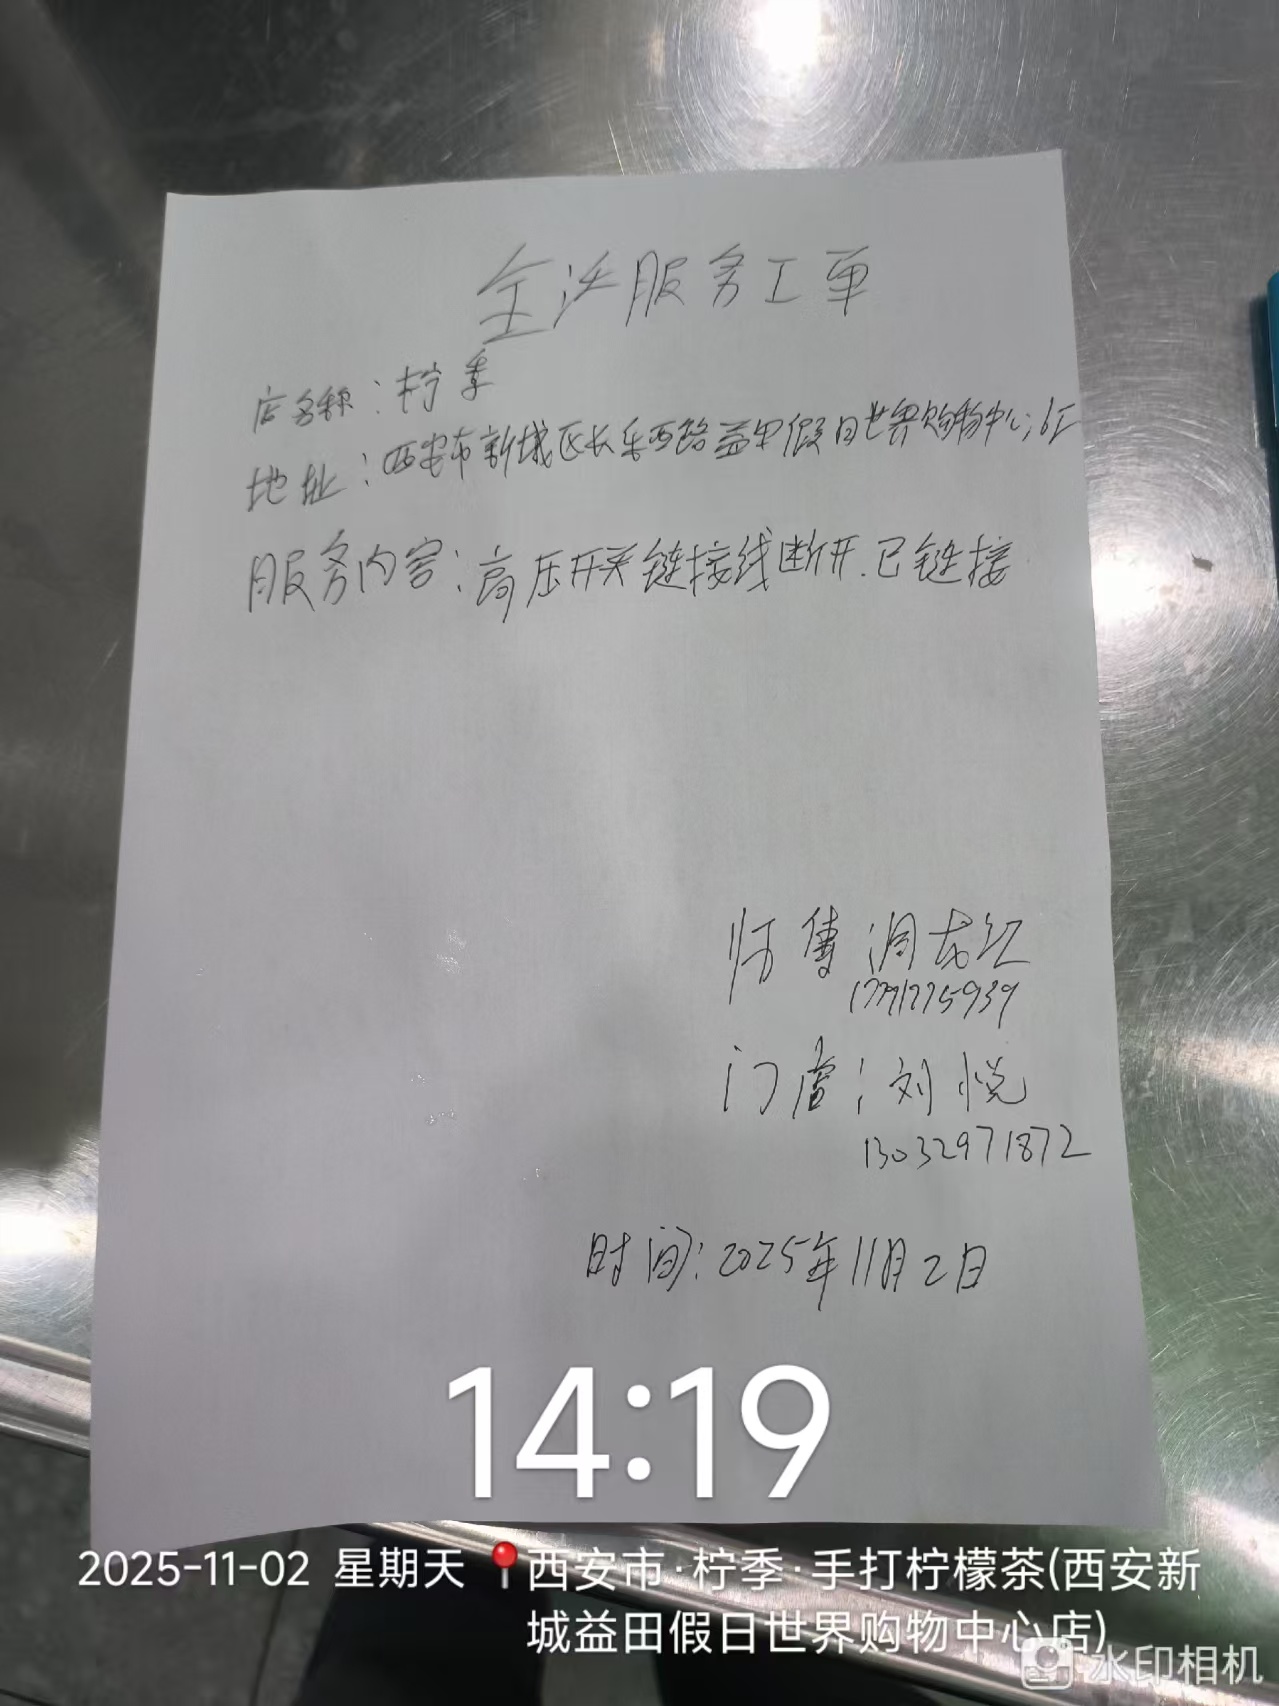 服务工单
店名称:柠季
地址:西安市新城区长乐西路益田假日世界购物中心
服务内容:高压开关链接线断开.已链接
师傅
门店:刘悦
13032971872
时间:2025年11月2日
14:19
2025-11-02 星期天 西安市·柠季·手打柠檬茶(西安新
城益田假日世界购物中心店)
水印相机